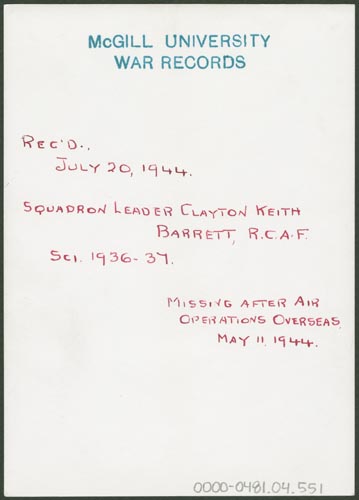 McGILL UNIVERSITY
WAR RECORDS
REC'D.,
JULY 20, 1944.
SQUADRON LEADER CLAYTON KEITH
BARRETT, R.C.A.F.
SCI. 1936-37.
MISSING AFTER AIR
OPERATIONS OVERSEAS
MAY 11, 1944.
0000-0481.04.551